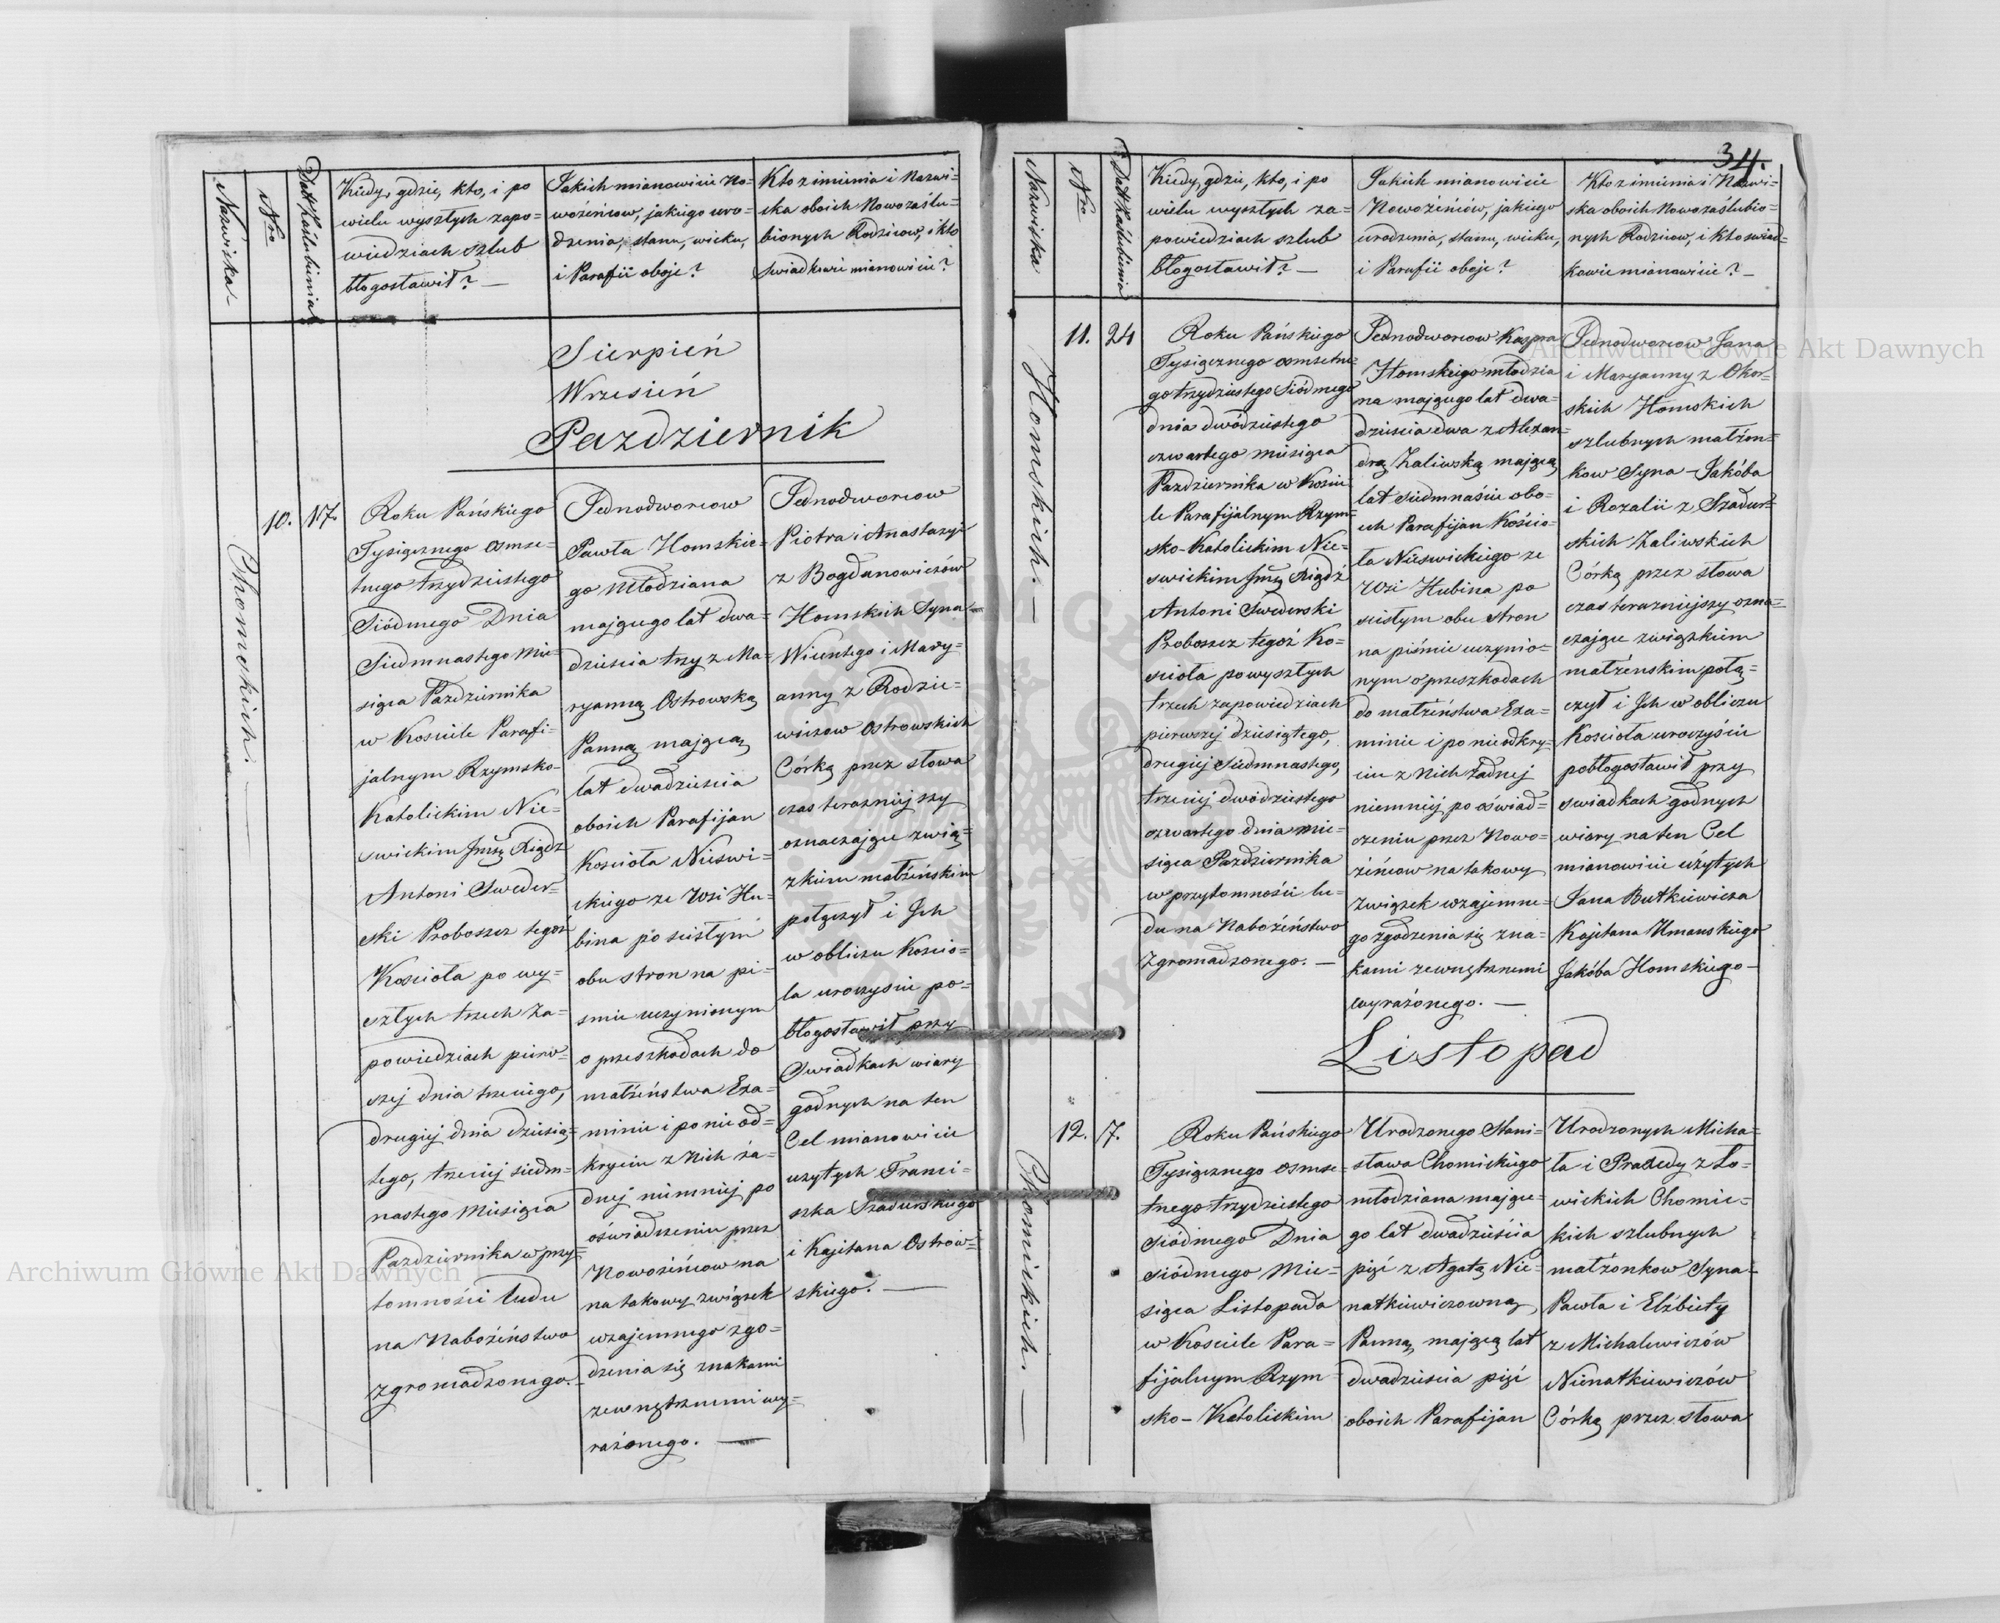 Nazwiska.
Nro
Dat Zaślubinia
Kiedy, gdzie, kto, i po
wielu wyszłych zapo=
wiedziach szlub
błogosławił? —
Jakich mianowicie No=
wożeńcow, jakiego uro=
dzenia, stanu, wieku,
i Parafii oboje?
Kto z imienia i Nazwi=
ska oboich Nowozaślu=
bionych Rodzicow, i kto
swiadkowie mianowicie?
Sierpień
Wrzesień
Pazdziernik
Chomskich. —
10.
17.
Roku Pańskiego
Tysiącznego osmse=
tnego trzydziestego
Siódmego Dnia
Siedmnastego Mie=
siąca Pazdziernika
w Kosciele Parafi=
jalnym Rzymsko-
Katolickim Nie=
swickim Jmść Xiądz
Antoni Sweder=
ski Proboszcz tegoż
Kościoła po wy=
szłych trzech Za=
powiedziach pierw=
szej dnia trzeciego,
drugiej dnia dziesią=
tego, trzeciej siedm=
nastego Miesiąca
Pazdziernika w przy=
tomności Ludu
na Nabożeństwo
zgromadzonego.
Jednodworcow
Pawła Homskie=
go Młodziana
mającego lat dwa=
dziescia trzy z Ma=
ryanną Ostrowską
Panną mającą
lat dwadziescia
oboich Parafijan
Kosciola Nieswi=
skiego ze Wsi Hu=
bina po scisłym
obu stron na pi=
smie uczynionym
o przeszkodach do
małżeństwa Exa=
minie i po nie od=
kryciu z Nich ża=
dnej niemniej po
oświadczeniu przez
Nowożeńcow na
na takowy związek
wzajemnego zgo=
dzenia się znakami
zewnętrznemi wy=
rażonego. —
Jednodworcow
Piotra i Anastazyi
z Bogdanowiczów
Homskich Syna—
Wicentego i Mary=
anny z Rodzie=
wiczow Ostrowskich
Córką przez słowa
czas terazniejszy
oznaczające zwią=
zkiem małżeńskim
połączył i Ich
w obliczu Koscio=
la uroczyscie po=
błogosławił przy
Swiadkach wiary
godnych na ten
Cel mianowicie
użytych Franci=
szka Szadurskiego
i Kajetana Ostrow=
skiego. —
34.
Nazwiska
Nro
Dat Zaślubinia
Kiedy, gdzie, kto, i po
wielu wyszłych za=
powiedziach szlub
błogosławił? —
Jakich mianowicie
Nowożeńców, jakiego
urodzenia, stanu, wieku,
i Parafii oboje?
Kto z imienia i Nazwi=
ska oboich Nowozaślubio=
nych Rodzicow, i kto swiad=
kowie mianowicie? —
Homskich. —
11.
24
Roku Pańskiego
Tysiącznego osmsetne=
go trzydziestego Siódmego
dnia dwódziestego
czwartego miesiąca
Pazdziernika w Koscie
le Parafijalnym Rzym=
sko-Katolickim Nie=
swickim Jmść Xiądz
Antoni Swederski
Proboszcz tegoż Ko=
scioła po wyszłych
trzech zapowiedziach
pierwszej dziesiątego,
drugiej Siedmnastego,
trzeciej dwódziestego
czwartego dnia mie=
siąca Pazdziernika
w przytomności lu=
du na Nabożeństwo
Zgromadzonego. —
Jednodworcow Kaspra
Homskiego młodzia
na mającego lat dwa=
dziescia dwa z Alexan=
drą Zaliwską mającą
lat siedmnaście obo=
ich Parafijan Kościo=
ła Nieswickiego ze
Wsi Hubina po
scisłym obu stron
na piśmie uczynio=
nym o przeszkodach
do małżeństwa Exa=
minie i po nie odkry=
ciu z Nich żadnej
niemniej po oświad=
czeniu przez Nowo=
żeńcow na takowy
związek wzajemne=
go zgodzenia się zna=
kami zewnętrznemi
wyrażonego. —
Jednodworcow Jana
i Maryanny z Chor=
skich Homskich
szlubnych małżon=
kow Syna — Jakóba
i Rozalii z Szadur=
skich Zaliwskich
Córką przez słowa
czas teraznieyszy ozna=
czające związkiem
małżenskim połą=
czył i Ich w obliczu
Kościoła uroczyście
pobłogosławił przy
swiadkach godnych
wiary na ten Cel
mianowicie użytych
Jana Butkiewicza
Kajetana Umanskiego
Jakóba Homskiego —
Listopad
Chomickich. —
12.
7.
Roku Pańskiego
Tysiącznego osmse=
tnego trzydziestego
siódmego Dnia
siódmego Mie=
siąca Listopada
w Kosciele Para=
fijalnym Rzym
sko-Katolickim
Urodzonego Stani=
sława Chomickiego
młodziana mające=
go lat dwadzieścia
pięć z Agatą Nie=
natkiewiczowną,
Panną, mającą lat
dwadziescia pięć
oboich Parafijan
Urodzonych Micha=
ła i Praxedy z Ło=
wickich Chomic=
kich szlubnych
małżonkow Syna—
Pawła i Elżbiety
z Michalewiczów
Nienatkiewiczów
Córką przez słowa
Archiwum Główne Akt Dawnych
Archiwum Główne Akt Dawnych